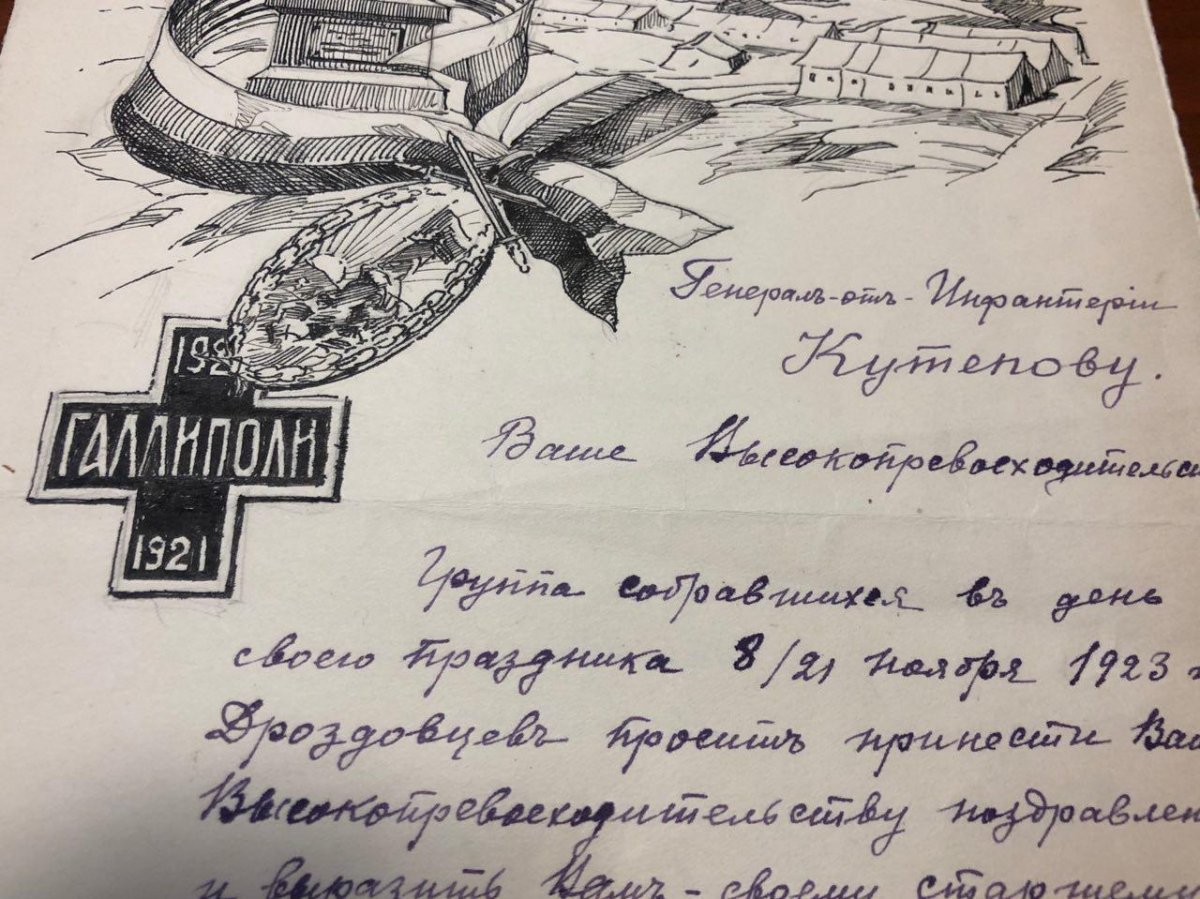 Генералъ-отъ-Инфантеріи
Кутепову.
192
ГАЛЛИПОЛИ
1921
Ваше Высокопревосходительс
Группа собравшихся въ день
своего праздника 8/21 ноября 1923 г
Дроздовцевъ проситъ принести Ва
Высокопревосходительству поздравлен
и выразить Вамъ - своему старшему